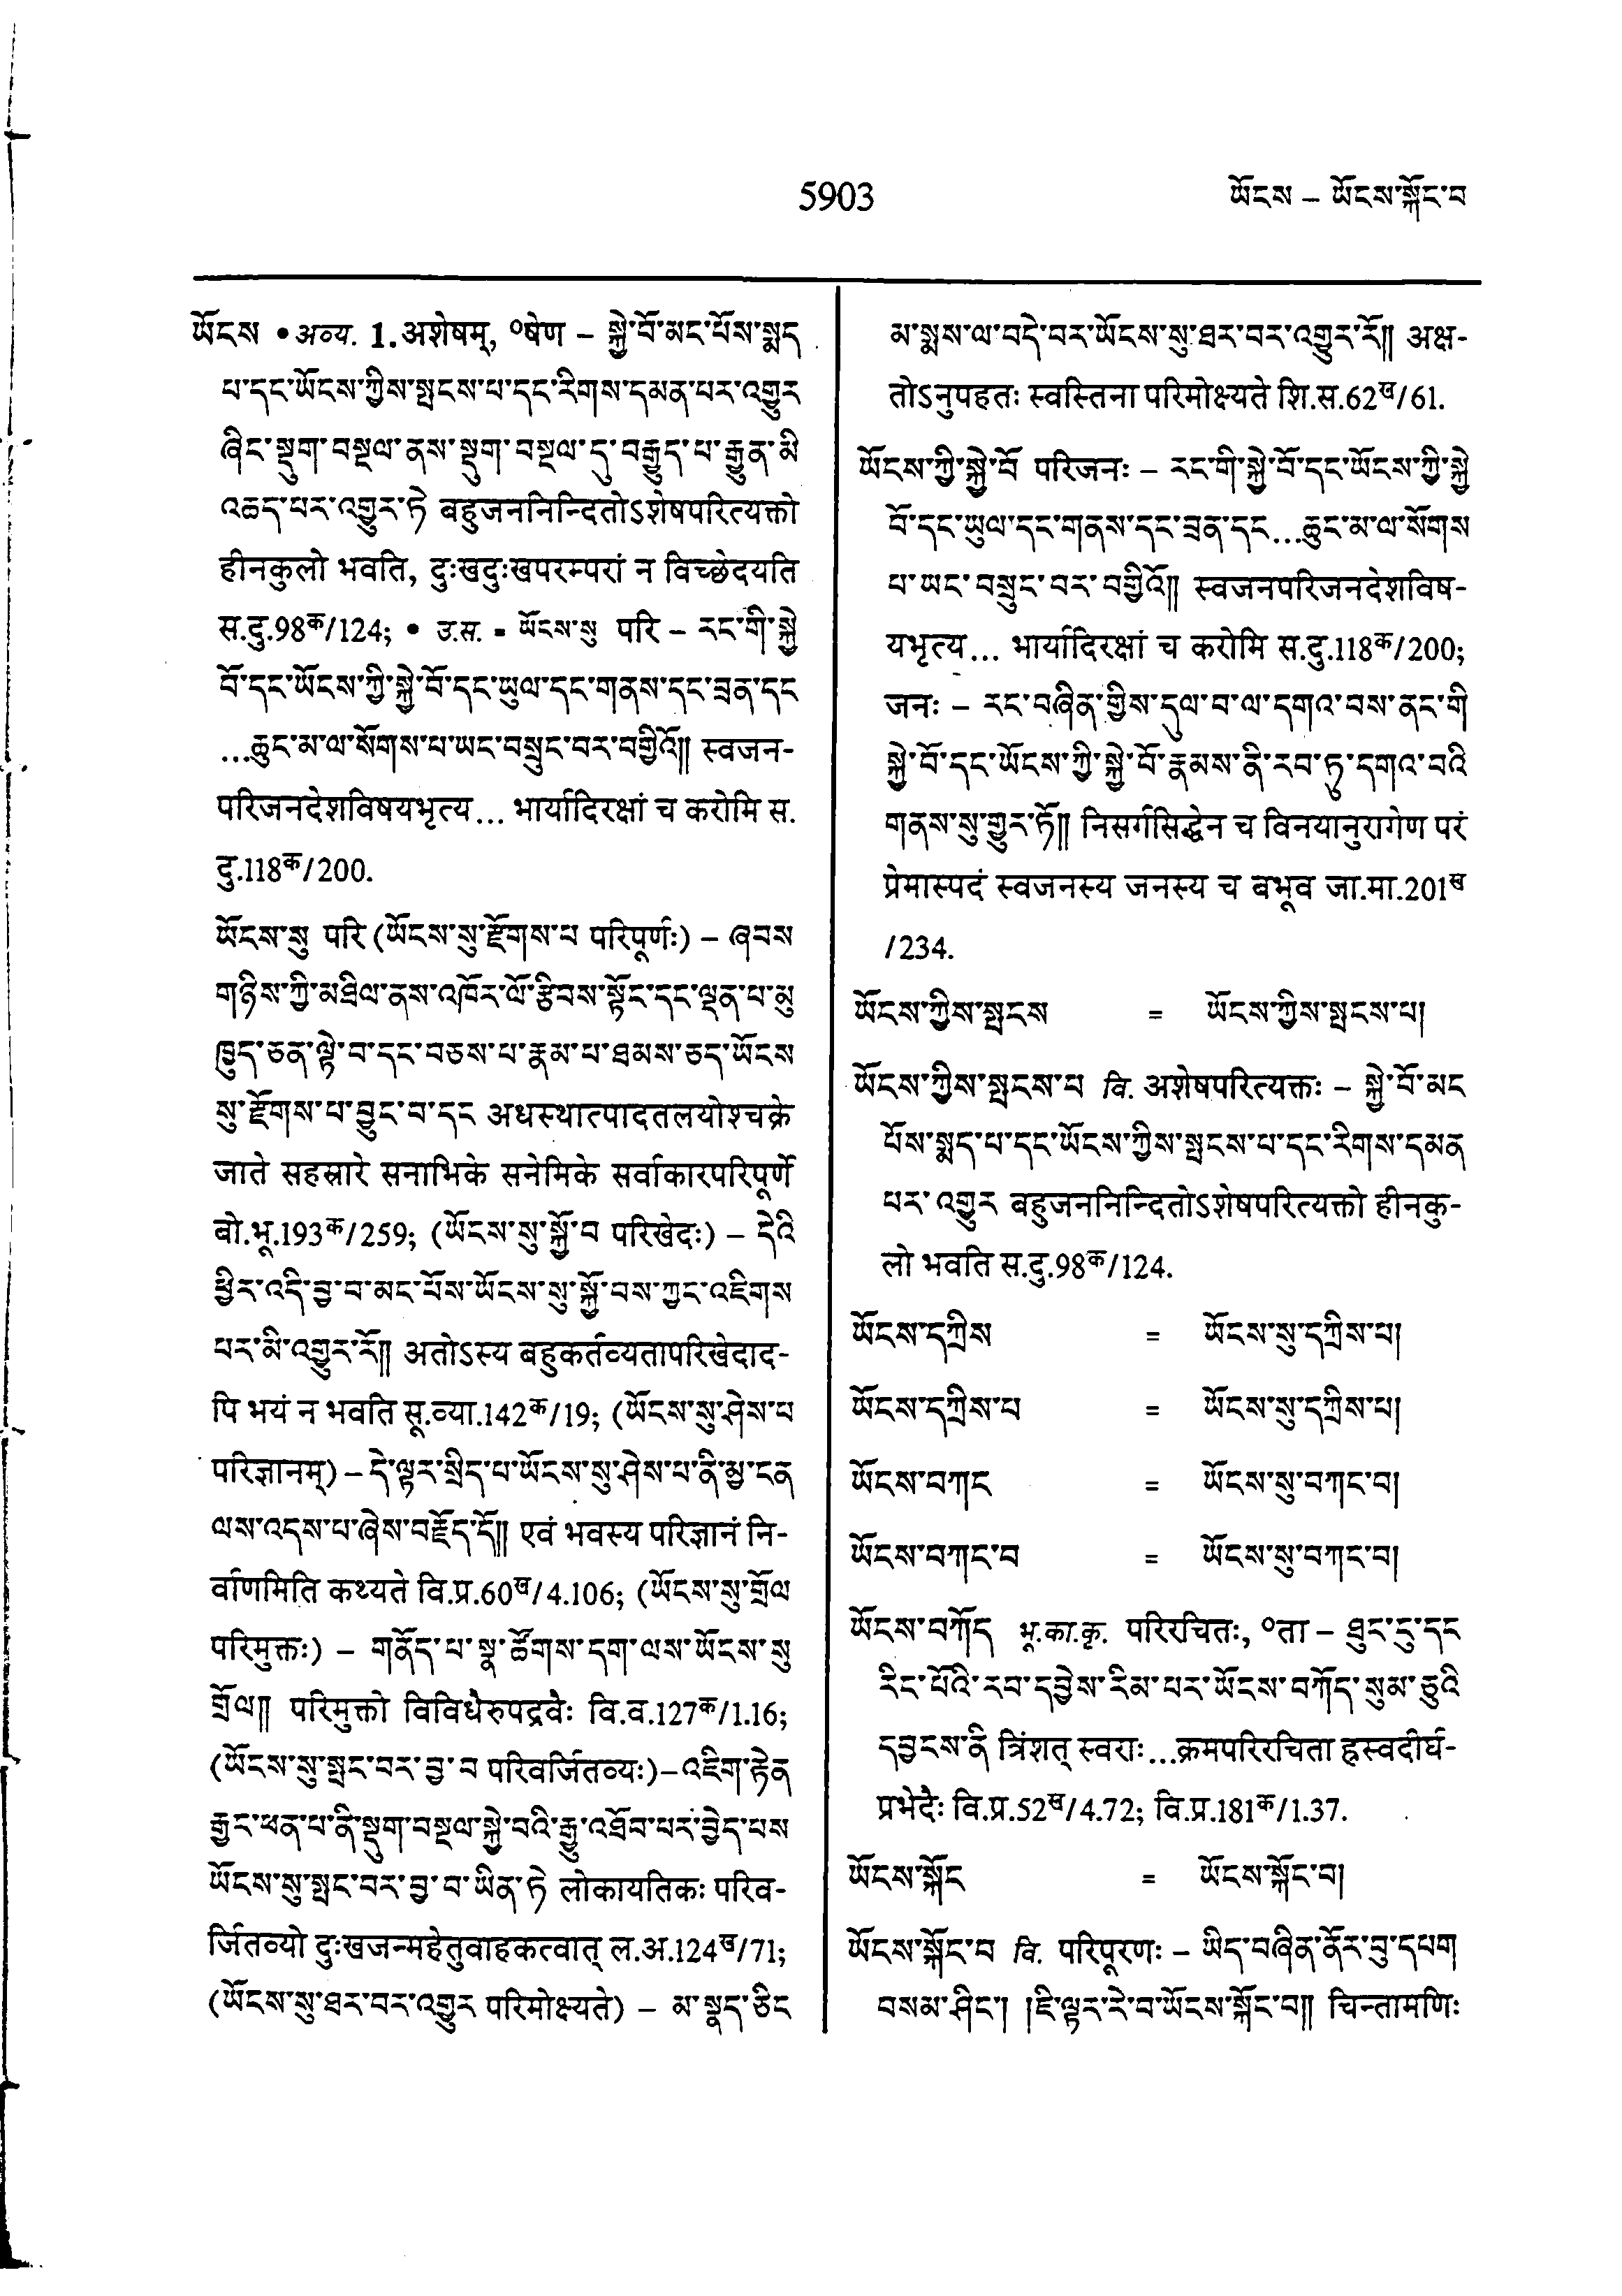 5903
ཡོངས – ཡོངས་སྐོང་བ
ཡོངས • अव्य. 1. अशेषम्, ०षेण – སྐྱེ་བོ་མང་པོས་སྨད
པ་དང་ཡོངས་ཀྱིས་སྤངས་པ་དང་རིགས་དམན་པར་འགྱུར
ཞིང་སྡུག་བསྔལ་ནས་སྡུག་བསྔལ་དུ་བརྒྱུད་པ་རྒྱུན་མི
འཆད་པར་འགྱུར་ཏེ बहुजननिन्दितोऽशेषपरित्यक्तो
हीनकुलो भवति, दुःखदुःखपरम्परां न विच्छेदयति
स.दु.98क/124; • उ.स. = ཡོངས་སུ परि – རང་གི་སྐྱེ
བོ་དང་ཡོངས་ཀྱི་སྐྱེ་བོ་དང་ཡུལ་དང་གནས་དང་བྲན་དང
...ཆུང་མ་ལ་སོགས་པ་ཡང་བསྲུང་བར་བགྱིའོ༎ स्वजन-
परिजनदेशविषयभृत्य... भार्यादिरक्षां च करोमि स.
दु.118क/200.
ཡོངས་སུ परि (ཡོངས་སུ་རྫོགས་པ परिपूर्णः) – ཞབས
གཉིས་ཀྱི་མཐིལ་ནས་འཁོར་ལོ་རྩིབས་སྟོང་དང་ལྡན་པ་མུ
ཁྱུད་ཅན་ལྟེ་བ་དང་བཅས་པ་རྣམ་པ་ཐམས་ཅད་ཡོངས
སུ་རྫོགས་པ་བྱུང་བ་དང अधस्थात्पादतलयोश्चक्रे
जाते सहस्रारे सनाभिके सनेमिके सर्वाकारपरिपूर्णे
बो.भू.193क/259; (ཡོངས་སུ་སྐྱོ་བ परिखेदः) – དེའི
ཕྱིར་འདི་བྱ་བ་མང་པོས་ཡོངས་སུ་སྐྱོ་བས་ཀྱང་འཇིགས
པར་མི་འགྱུར་རོ༎ अतोऽस्य बहुकर्तव्यतापरिखेदाद-
पि भयं न भवति सू.व्या.142क/19; (ཡོངས་སུ་ཤེས་པ
परिज्ञानम्) – དེ་ལྟར་སྲིད་པ་ཡོངས་སུ་ཤེས་པ་ནི་མྱ་ངན
ལས་འདས་པ་ཞེས་བརྗོད་དོ༎ एवं भवस्य परिज्ञानं नि-
र्वाणमिति कथ्यते वि.प्र.60ख/4.106; (ཡོངས་སུ་གྲོལ
परिमुक्तः) – གནོད་པ་སྣ་ཚོགས་དག་ལས་ཡོངས་སུ
གྲོལ༎ परिमुक्तो विविधैरुपद्रवैः वि.व.127क/1.16;
(ཡོངས་སུ་སྤང་བར་བྱ་བ परिवर्जितव्यः) – འཇིག་རྟེན
རྒྱང་ཕན་པ་ནི་སྡུག་བསྔལ་སྐྱེ་བའི་རྒྱུ་འཐོབ་པར་བྱེད་པས
ཡོངས་སུ་སྤང་བར་བྱ་བ་ཡིན་ཏེ लोकायतिकः परिव-
र्जितव्यो दुःखजन्महेतुवाहकत्वात् ल.अ.124ख/71;
(ཡོངས་སུ་ཐར་བར་འགྱུར परिमोक्ष्यते) – མ་སྣད་ཅིང
མ་སྨས་ལ་བདེ་བར་ཡོངས་སུ་ཐར་བར་འགྱུར་རོ༎ अक्ष-
तोऽनुपहतः स्वस्तिना परिमोक्ष्यते शि.स.62ख/61.
ཡོངས་ཀྱི་སྐྱེ་བོ परिजनः – རང་གི་སྐྱེ་བོ་དང་ཡོངས་ཀྱི་སྐྱེ
བོ་དང་ཡུལ་དང་གནས་དང་བྲན་དང...ཆུང་མ་ལ་སོགས
པ་ཡང་བསྲུང་བར་བགྱིའོ༎ स्वजनपरिजनदेशविष-
यभृत्य... भार्यादिरक्षां च करोमि स.दु.118क/200;
जनः – རང་བཞིན་གྱིས་དུལ་བ་ལ་དགའ་བས་ནང་གི
སྐྱེ་བོ་དང་ཡོངས་ཀྱི་སྐྱེ་བོ་རྣམས་ནི་རབ་ཏུ་དགའ་བའི
གནས་སུ་གྱུར་ཏོ༎ निसर्गसिद्धेन च विनयानुरागेण परं
प्रेमास्पदं स्वजनस्य जनस्य च बभूव जा.मा.201ख
/234.
ཡོངས་ཀྱིས་སྤངས = ཡོངས་ཀྱིས་སྤངས་པ།
ཡོངས་ཀྱིས་སྤངས་པ वि. अशेषपरित्यक्तः – སྐྱེ་བོ་མང
པོས་སྨད་པ་དང་ཡོངས་ཀྱིས་སྤངས་པ་དང་རིགས་དམན
པར་འགྱུར बहुजननिन्दितोऽशेषपरित्यक्तो हीनकु-
लो भवति स.दु.98क/124.
ཡོངས་དཀྲིས = ཡོངས་སུ་དཀྲིས་པ།
ཡོངས་དཀྲིས་པ = ཡོངས་སུ་དཀྲིས་པ།
ཡོངས་བཀང = ཡོངས་སུ་བཀང་བ།
ཡོངས་བཀང་བ = ཡོངས་སུ་བཀང་བ།
ཡོངས་བཀོད भू.का.कृ. परिरचितः, ०ता – ཐུང་ངུ་དང
རིང་པོའི་རབ་དབྱེས་རིམ་པར་ཡོངས་བཀོད་སུམ་ཅུའི
དབྱངས་ནི त्रिंशत् स्वराः...क्रमपरिरचिता ह्रस्वदीर्घ-
प्रभेदैः वि.प्र.52ख/4.72; वि.प्र.181क/1.37.
ཡོངས་སྐོང = ཡོངས་སྐོང་བ།
ཡོངས་སྐོང་བ वि. परिपूरणः – ཡིད་བཞིན་ནོར་བུ་དཔག
བསམ་ཤིང་། །ཇི་ལྟར་རེ་བ་ཡོངས་སྐོང་བ༎ चिन्तामणिः